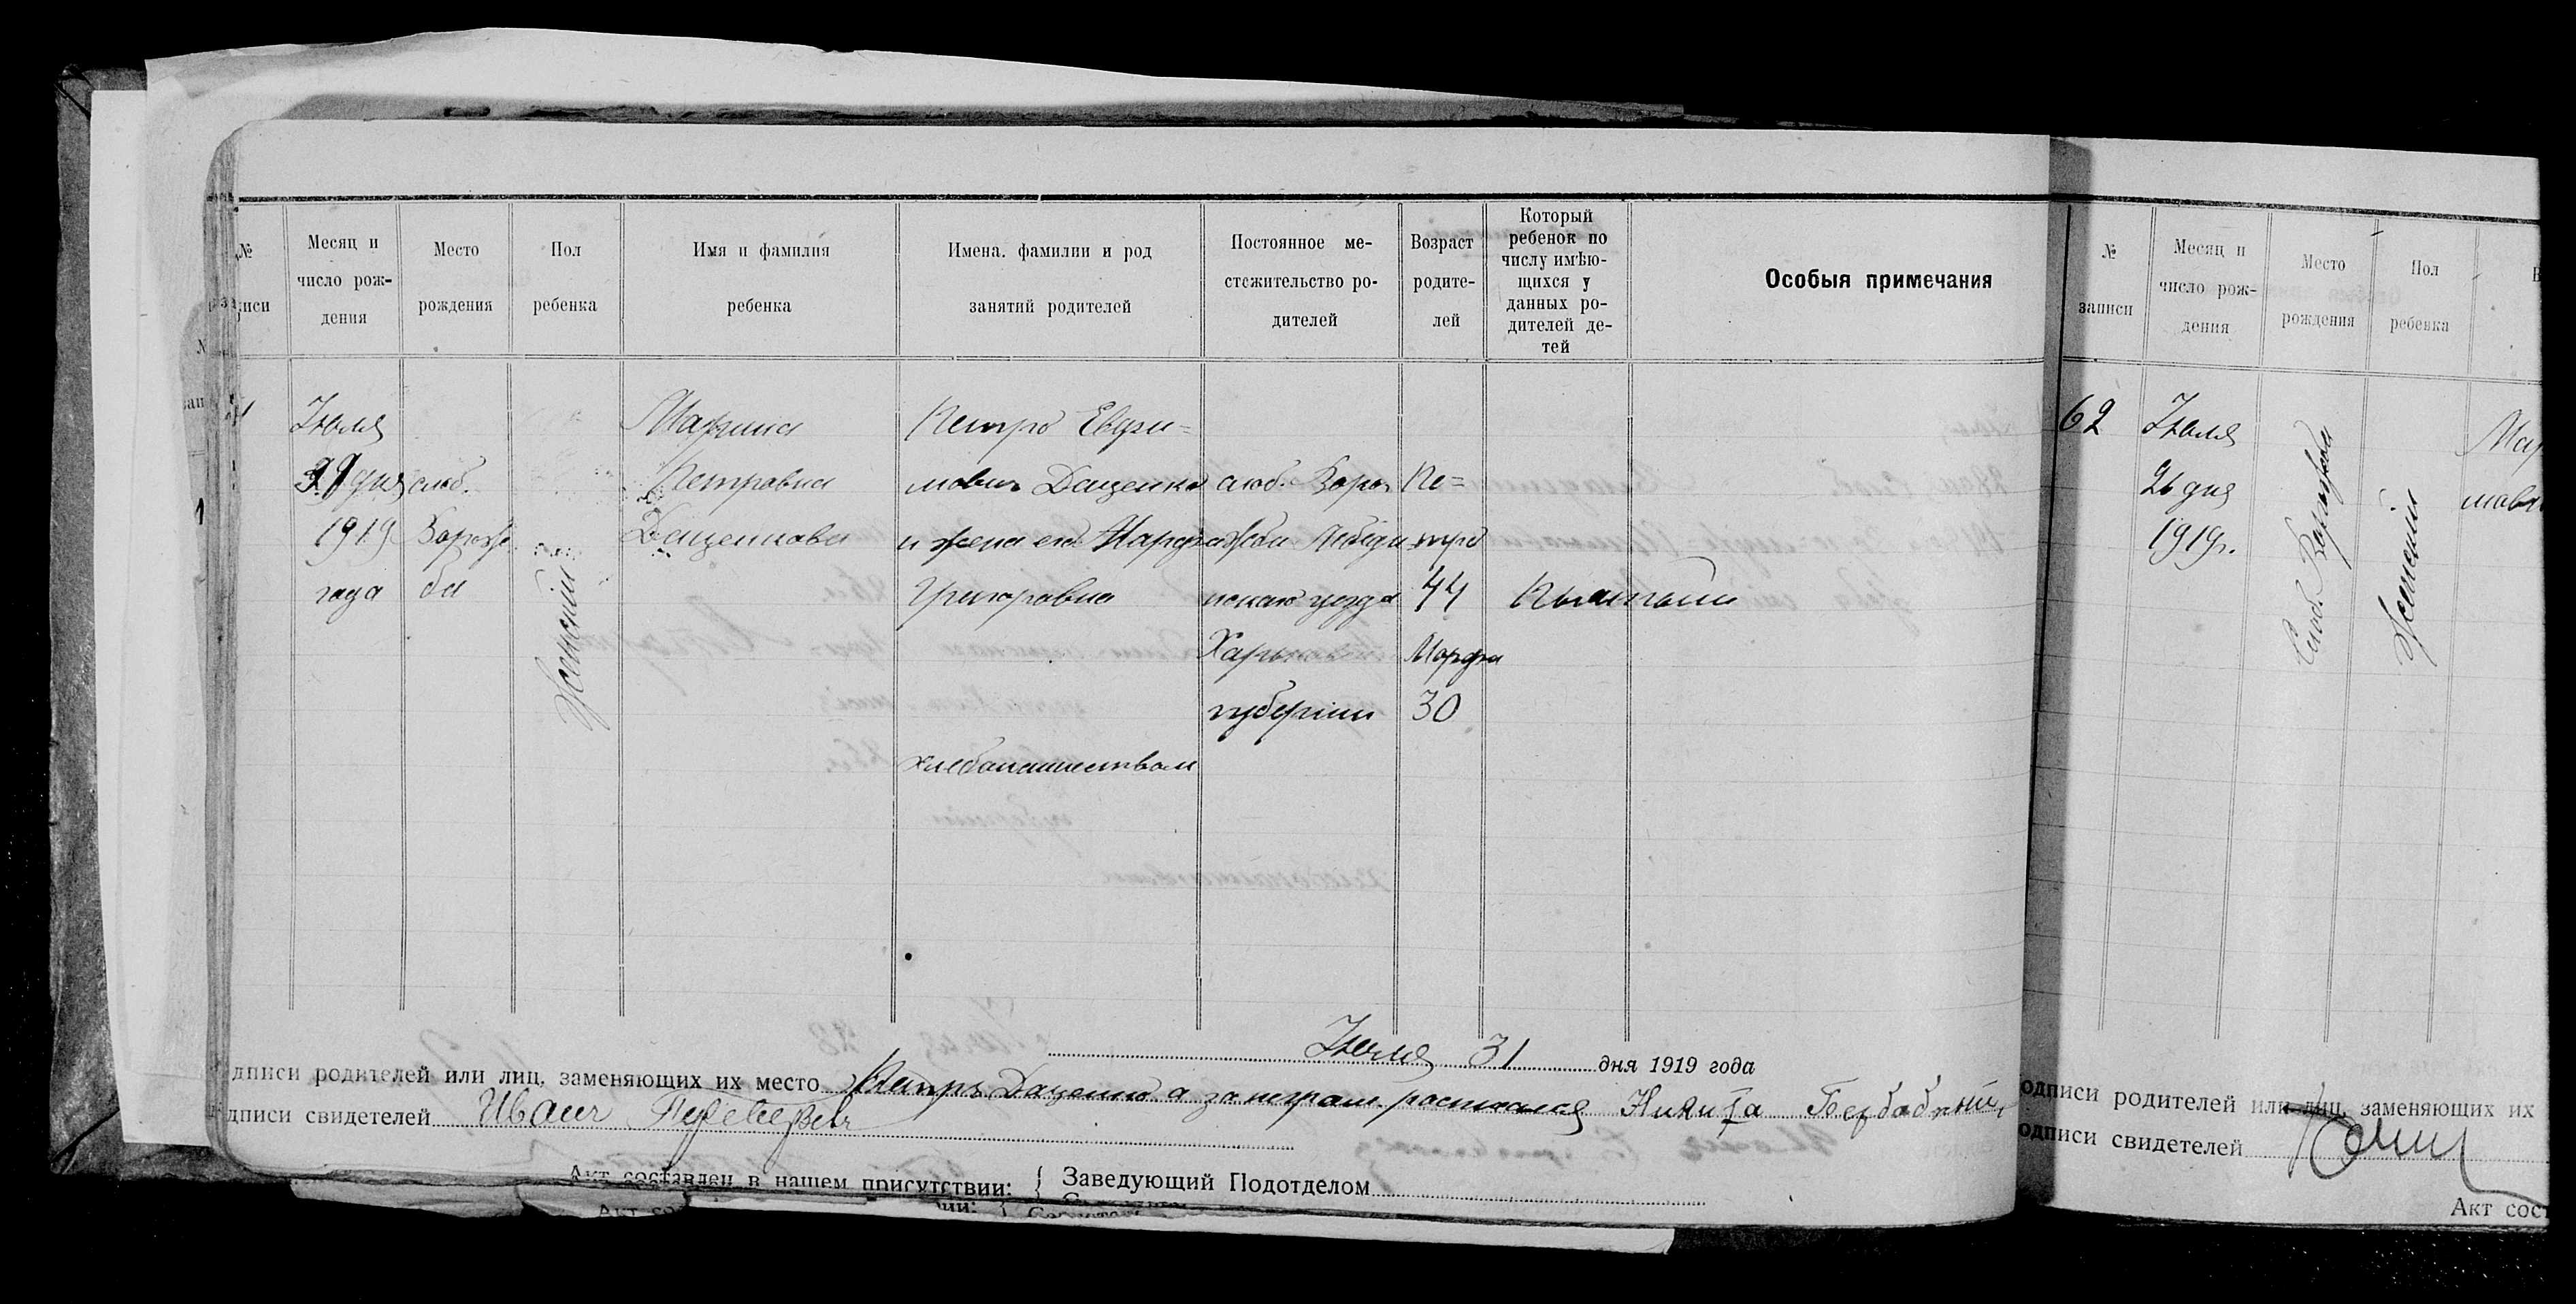 №
иси
Месяц и
число рож-
дения
Место
рождения
Пол
ребенка
Имя и фамилия
ребенка
Имена, фамилии и род
занятий родителей
Постоянное ме-
стожительство ро-
дителей
Возраст
родите-
лей
Который
ребенок по
числу имѣю-
щихся у
данных ро-
дителей де-
тей
Особыя примечания
Июля
дня
1919
года
слоб.
Ворож
ба
Женский
Марина
Петровна
Даценкова
Петро Евфи=
мович Даценко
и жена его Марфа
Григоровна
хлебопашеством
слоб. Воро
жби Лебеди
нскаго уезда
Харьков
губернии
Пе=
тро
44
Марфа
30
Июля 31 дня 1919 года
дписи родителей или лиц, заменяющих их место Петръ Даценко а за неграм. росписался Никита
дписи свидетелей Иван
Акт составлен в нашем присутствии: { Заведующий Подотделом
№
записи
Месяц и
число рож-
дения
Место
рождения
Пол
ребенка
62
Июля
26 дня
1919г.
Слоб. Ворожба
Женский
Мар
одписи родителей или лиц, заменяющих их
одписи свидетелей
Акт сост